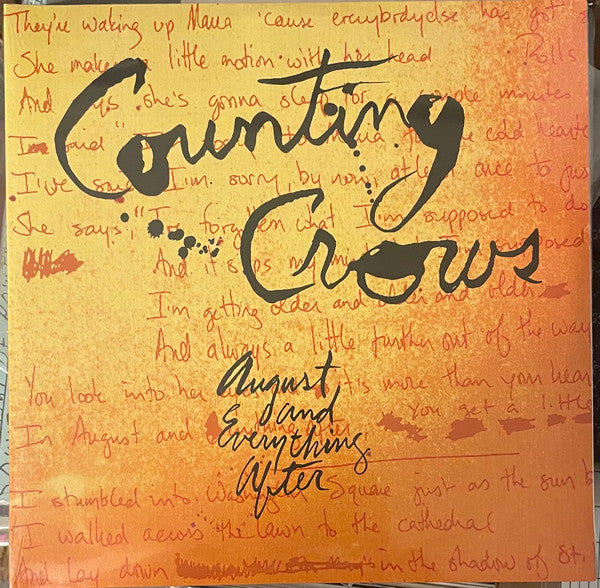 They're waking up Maria 'cause everybody else has got s
She makes a little motion with her head Rolls
And says she's gonna sleep for a couple minutes
I said "I'm sorry to Maria for the cold hearte
I've said I'm sorry by now, at least once to jus
She says, "I've forgotten what I'm supposed to do
And it slips my mind supposed
I'm getting older and older and older
And always a little further out of the way
You look into her it's more than you hear
You get a little
In August and after
I stumbled into Washington Square just as the sun b
I walked across the lawn to the cathedral
And lay down in the shadow of St.
Counting
Crows
August
and
Everything
After